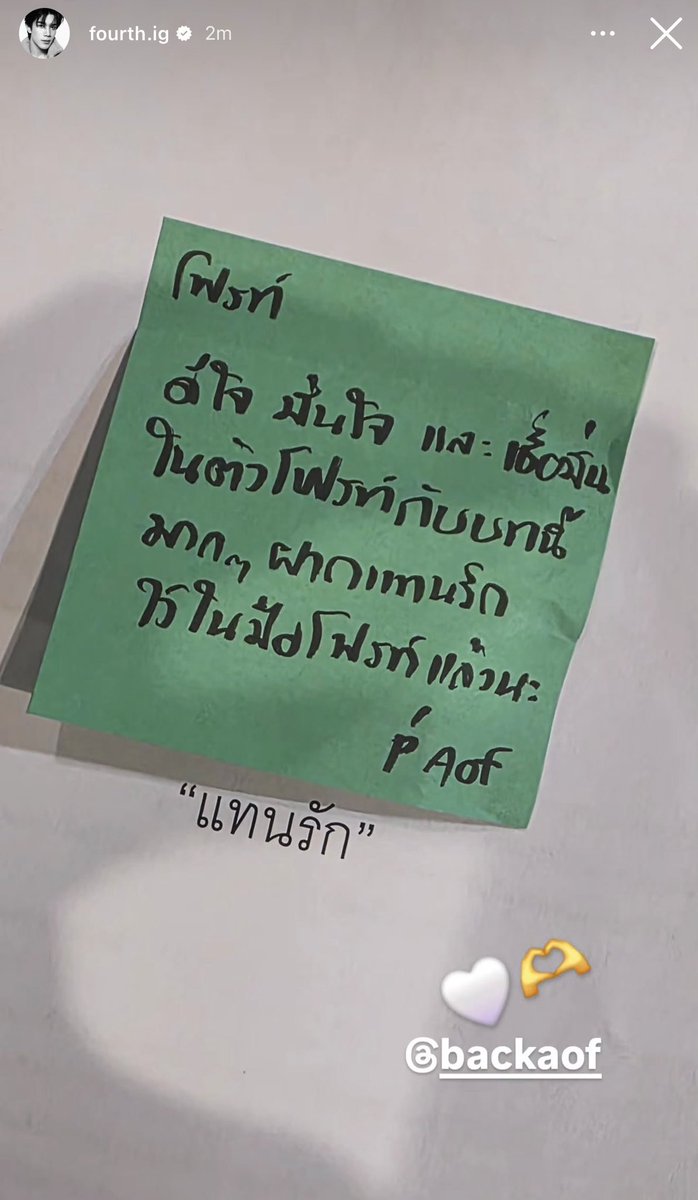 fourth.ig 2m
โฟรท์
ดีใจ มั่นใจ และ เชื่อมั่น
ในตัวโฟรท์กับบทนี้
มากๆ ฝากแทนรัก
ไว้ในมือโฟรท์แล้วนะ
P' Aof
“แทนรัก”
@backaof